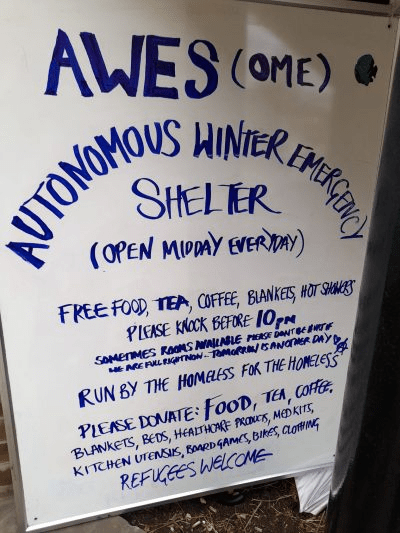 AWES (OME)
AUTONOMOUS WINTER EMERGENCY
SHELTER
(OPEN MIDDAY EVERYDAY)
FREE FOOD, TEA, COFFEE, BLANKETS, HOT SHOWERS
PLEASE KNOCK BEFORE 10PM
SOMETIMES ROOMS AVAILABLE PLEASE DONT BE HURT IF
WE ARE FULL RIGHT NOW - TOMORROW IS ANOTHER DAY
RUN BY THE HOMELESS FOR THE HOMELESS
PLEASE DONATE: FOOD, TEA, COFFEE,
BLANKETS, BEDS, HEALTHCARE PRODUCTS, MEDKITS,
KITCHEN UTENSILS, BOARD GAMES, BIKES, CLOTHING
REFUGEES WELCOME